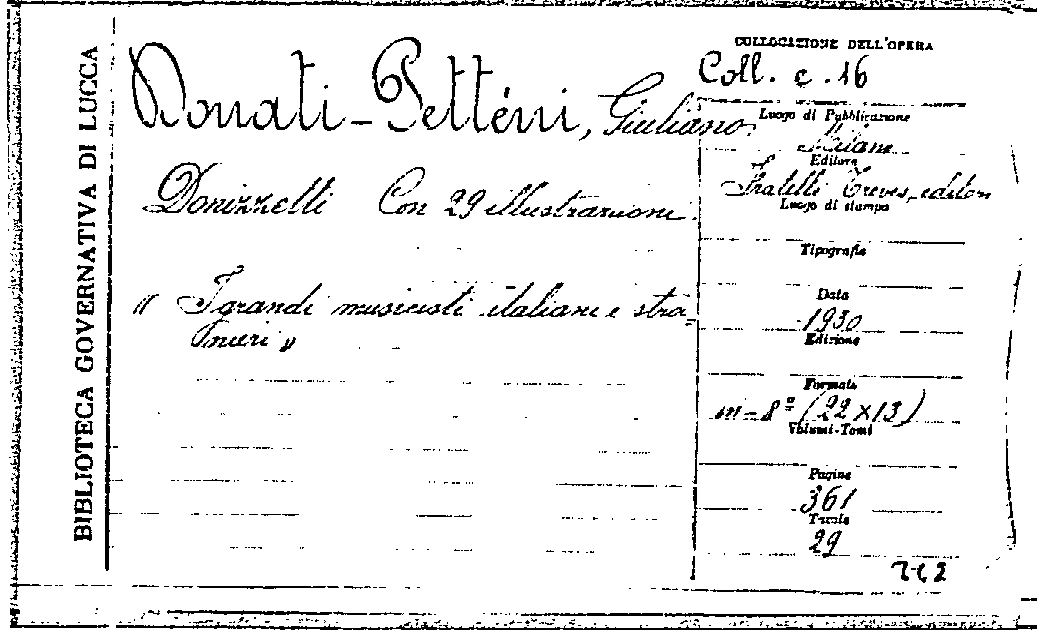 BIBLIOTECA GOVERNATIVA DI LUCCA
Donati-Petténi, Giuliano.
Donizzetti Con 29 illustrazioni.
" I grandi musicisti italiani e stra-
nieri "
COLLOCAZIONE DELL'OPERA
Coll. c. 16
Luogo di Pubblicazione
Milano
Editore
Fratelli Treves, editori
Luogo di stampa
Tipografia
Data
1930
Edizione
Formato
in-8º (22 x 13)
Volumi-Tomi
Pagine
361
Tavole
29